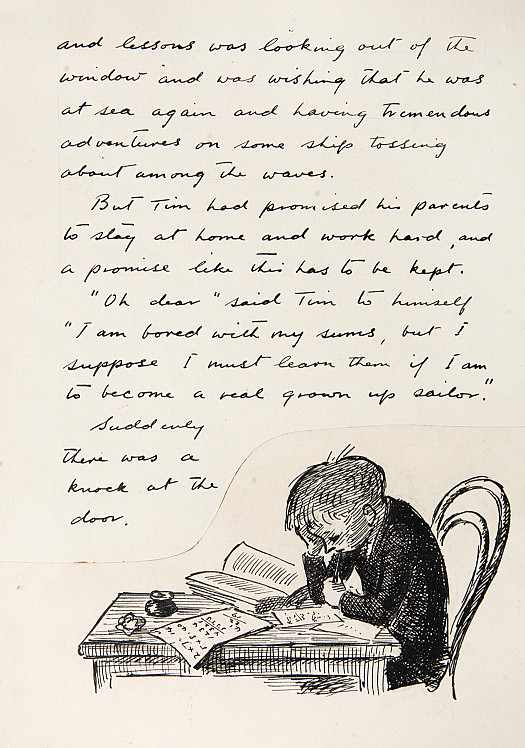 and lessons was looking out of the
window and was wishing that he was
at sea again and having tremendous
adventures on some ship tossing
about among the waves.
But Tim had promised his parents
to stay at home and work hard, and
a promise like this has to be kept.
"Oh dear" said Tim to himself
"I am bored with my sums, but I
suppose I must learn them if I am
to become a real grown up sailor."
Suddenly
there was a
knock at the
door.